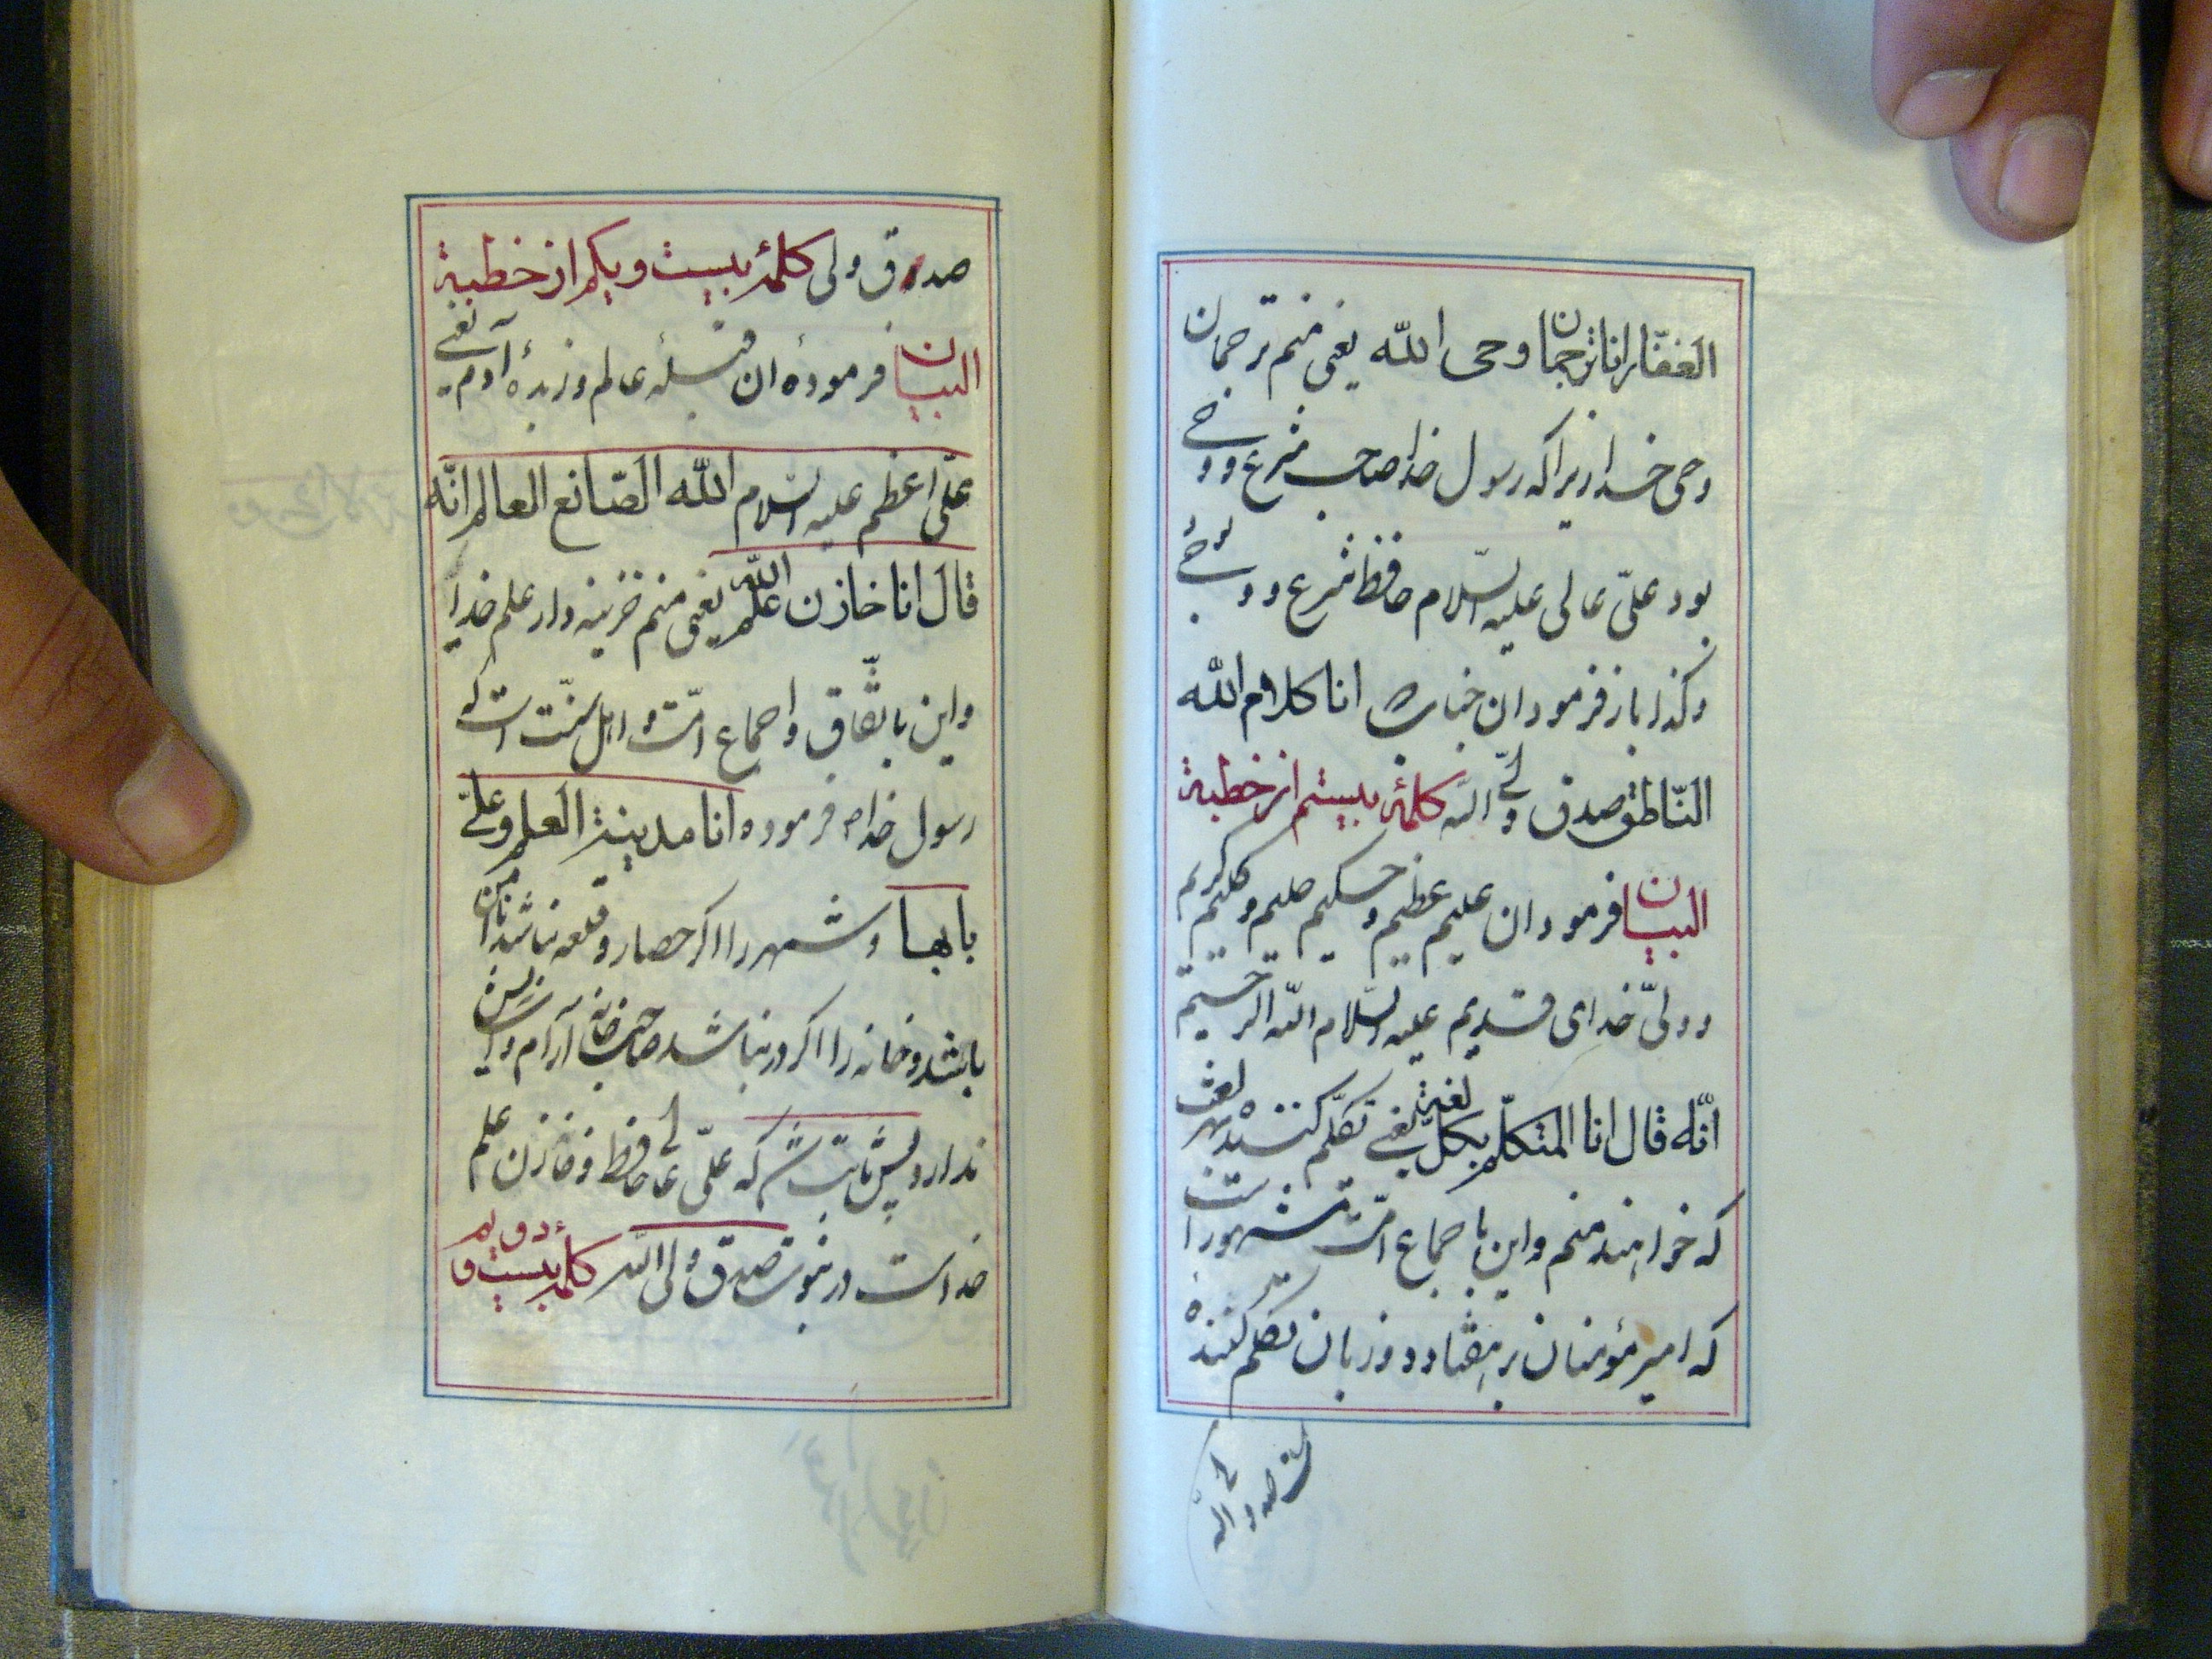 الغفّار انا ترجمان وحی الله یعنی منم ترجمان
وحی خدا زیرا که رسول خدا صاحب شرع و وحی
بود علیّ عالی علیه السّلام حافظ شرع و وحی بود
و کذا باز فرمود ان جناب انا کلام الله
النّاطق صدق ولی الله کلمهٔ بیستم از خطبة
البیان فرمود ان علیم عظیم و حکیم حلیم و کلیم کریم
و ولیّ خدای قدیم علیه السّلام الله الرحیم
انّه قال انا المتکلّم بکل لغة یعنی تکلّم کننده بهر لغت
که خواهند منم و این باجماع امّت مشهور است
که امیر مؤمنان بر هفتاد و دو زبان تکلم کننده
است صدق ولی الله
صدق ولی کلمهٔ بیست و یکم از خطبة
البیان فرمودهٔ ان قبلهٔ عالم و زبدهٔ آدم یعنی
علیّ اعظم علیه السّلام الله الصّانع العالم انّه
قال انا خازن علم الله یعنی منم خزینه دار علم خدا
و این باتّفاق و اجماع امّت و اهل سنّت است که
رسول خدا فرموده انا مدینة العلم و علیّ
بابها و شهر را اکر حصار و قلعه نباشد نا امن
باشد و خانه را اکر در نباشد صاحب خانه آرام و آسایش
ندارد پس ثابت شد که علیّ عالی حافظ و خازن علم
خداست در نبوت صدق ولی الله کلمهٔ بیست و دویم